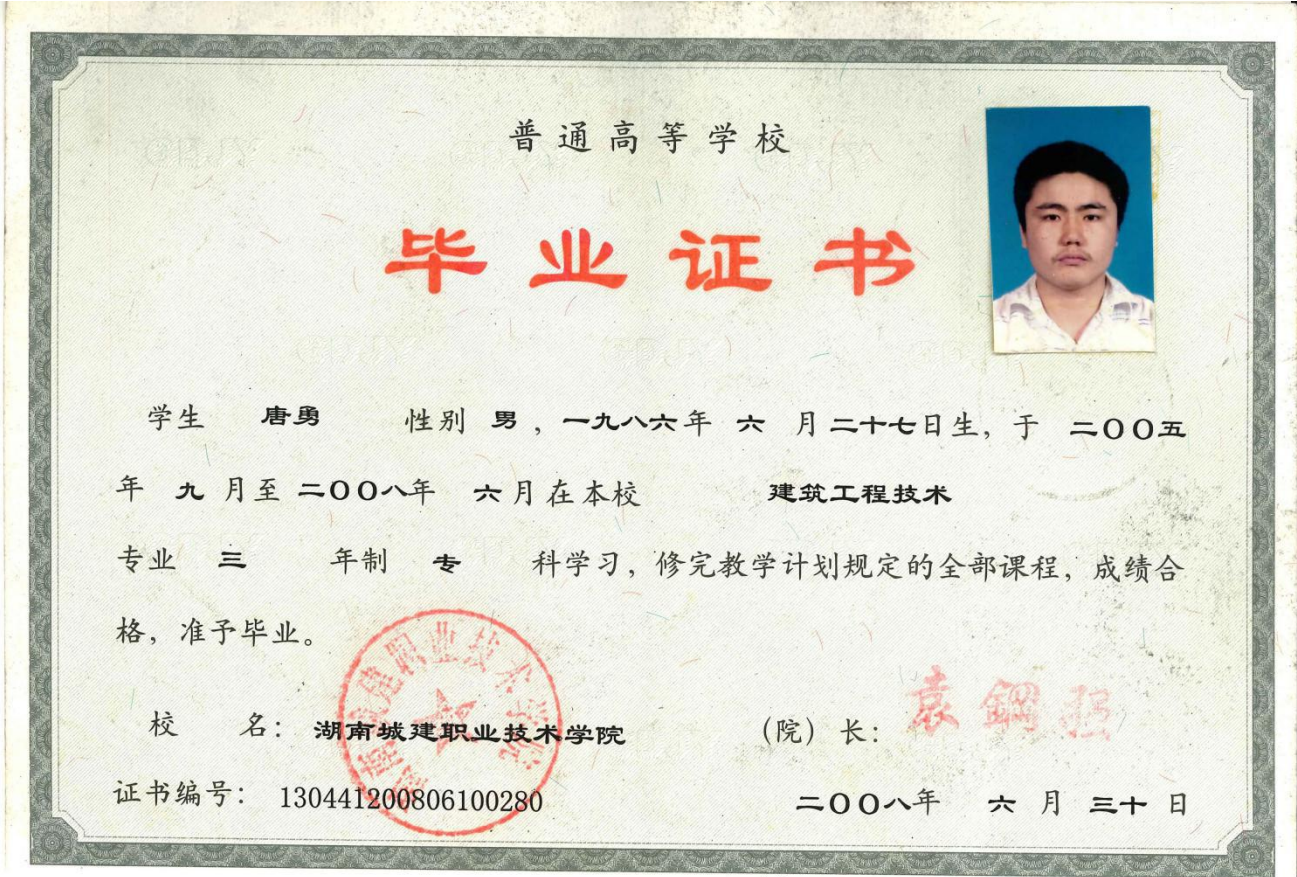 普通高等学校
毕业证书
学生 唐勇 性别 男，一九八六年 六 月二十七日生，于 二〇〇五
年 九 月至 二〇〇八年 六月在本校 建筑工程技术
专业 三 年制 专 科学习，修完教学计划规定的全部课程，成绩合
格，准予毕业。
湖南城建职业技术学院
校 名：湖南城建职业技术学院 （院）长：袁鋼强
证书编号：130441200806100280 二〇〇八年 六 月 三十 日